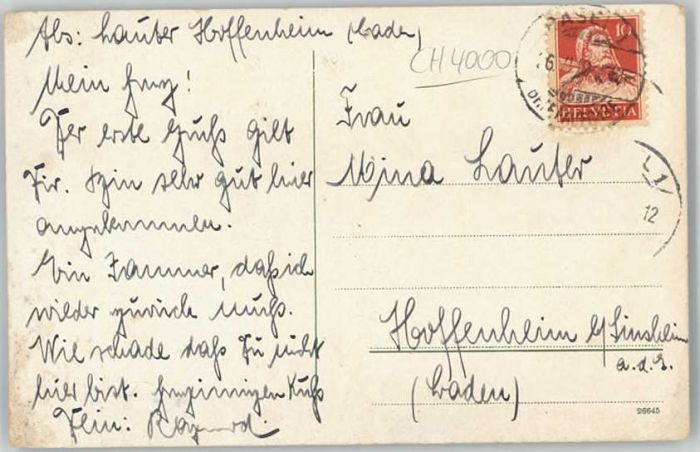 Abs: Lauter Hoffenheim (Baden)
CH 4000
Mein Herz!
Der erste Gruß gilt
Dir. Bin sehr gut hier
angekommen.
Ein Jammer, daß ich
wieder zurück muß.
Wie schade daß Du nicht
hier bist. Herzinnigen Kuß
Dein:
Frau
Mina Lauter
Hoffenheim b/ Sinsheim
a. d. E.
(Baden)
26645
BASEL
10
HELVETIA
L 1
12